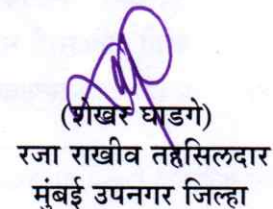 (शेखर घाडगे)
रजा राखीव तहसिलदार
मुंबई उपनगर जिल्हा